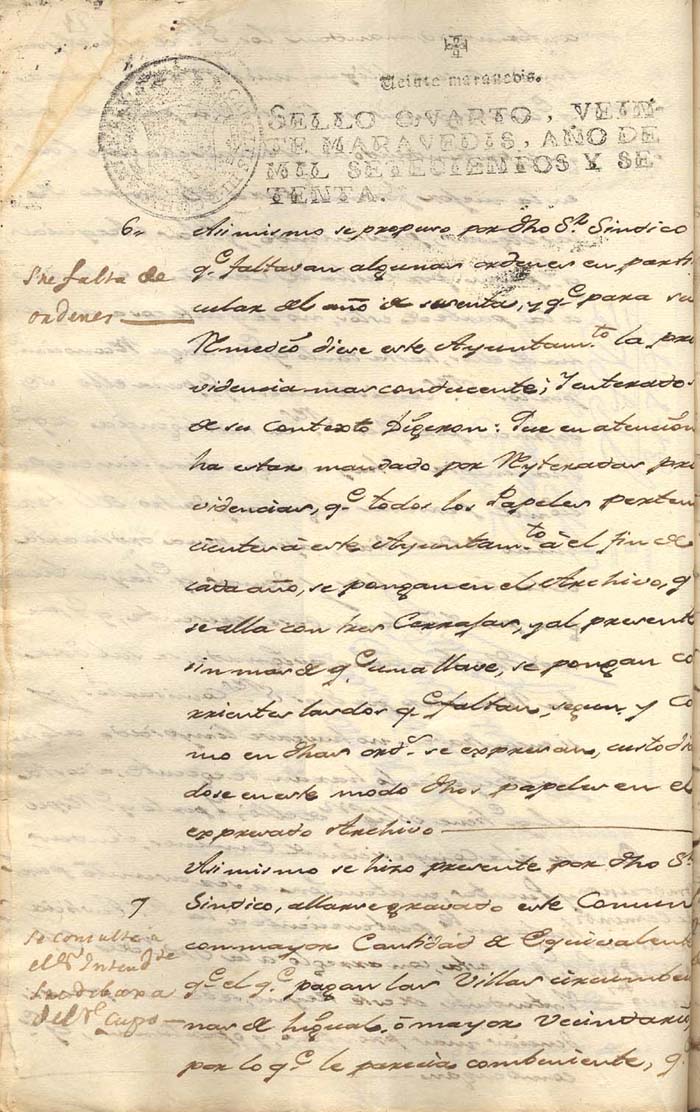 Veinte maravedis.
SELLO QVARTO, VEIN-
TE MARAVEDIS, AÑO DE
MIL SETECIENTOS Y SE-
TENTA.
6,, Asimismo se propuso por dho Sr. Sindico
Sre falta de
ordenes
qe. faltavan algunas ordenes en parti
cular del año de sesenta, y qe. para su
Remedio diese este Ayuntamto. la pro
videncia mas conducente; Y enterados
de su Contexto Digeron: Que en atencion
ha estar mandado por Reyteradas pro
videncias, qe. todos los Papeles perten
cientes à este Ayuntamto. à el fin de
cada año, se pongan en el Archivo, q
se alla con tres Cerrajas, y al presente
sin mas de qe. una llave, se pongan co
rrientes las dos qe. faltan, segun, y Co
mo en dhas ords. se expresan, custodian
dose en este modo dhos papeles en el
expresado Archivo
Asimismo se hizo presente por dho Sr.
7 Sindico, allarse gravado este Comun
Se consulte a
el Sr. Intendte.
Sre. de baxa
del Rl. Cupo
con mayor Cantidad de Equivalent
qe. el qe. pagan las Villas circumbe
nas de higual, ò mayor Vecindario
por lo qe. le parecia combeniente, q.